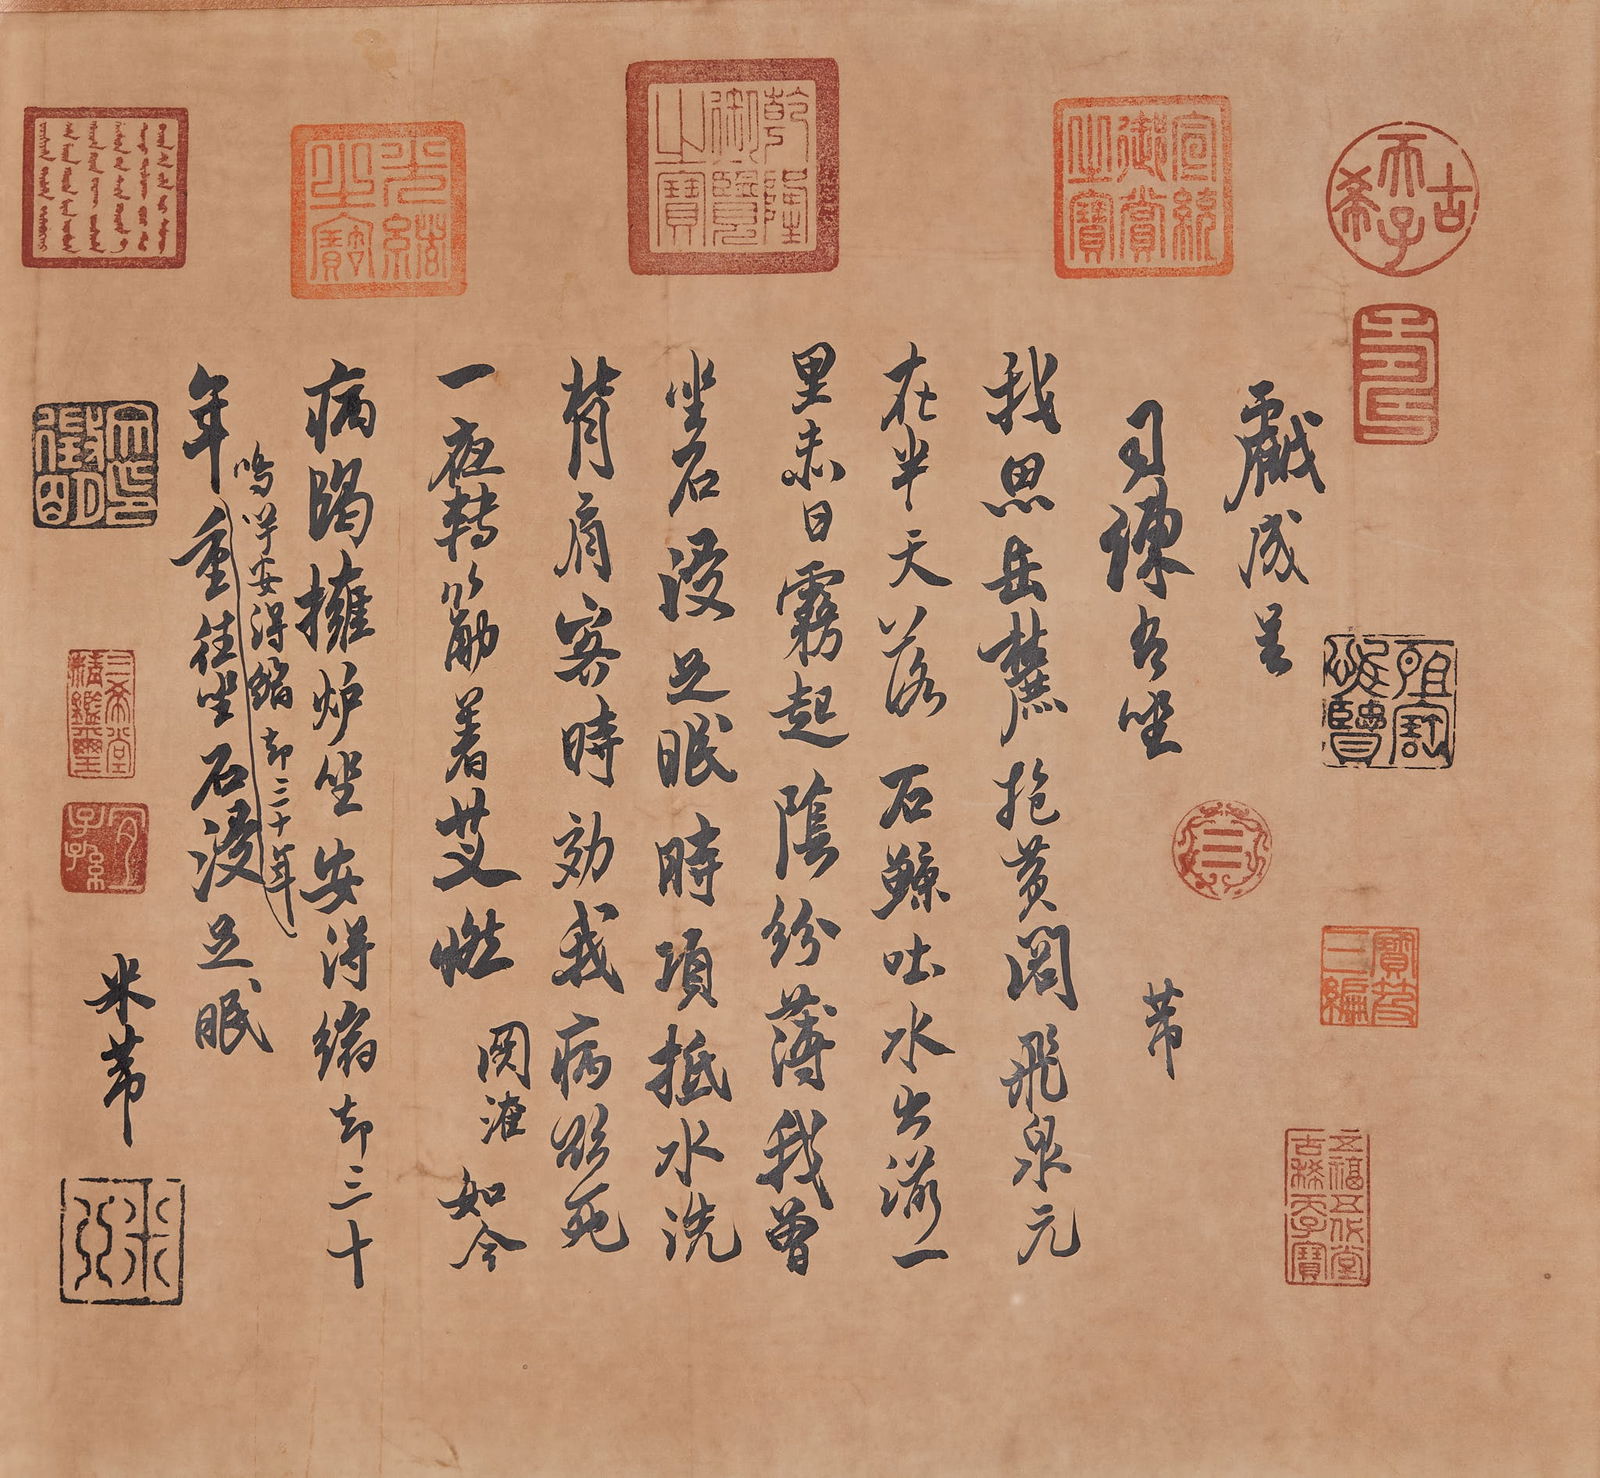 戲成呈
司諫台坐
芾
我思岳麓抱黃閣飛泉元
在半天落石鯨吐水出湍一
里赤日霧起陰紛薄我曾
坐石浸足眠時項抵水洗
背肩客時效我病欲死
一夜轉筋著艾燃
關淮如今
病渴擁爐坐安得縮卻三十
嗚呼安得縮卻三十年
年重往坐石浸足眠
米芾
古希天子
壽
宣統御賞之寶
乾隆御覽之寶
光緒之寶
寶笈三編
五福五代堂古稀天子寶
三希堂精鑑璽
宜子孫